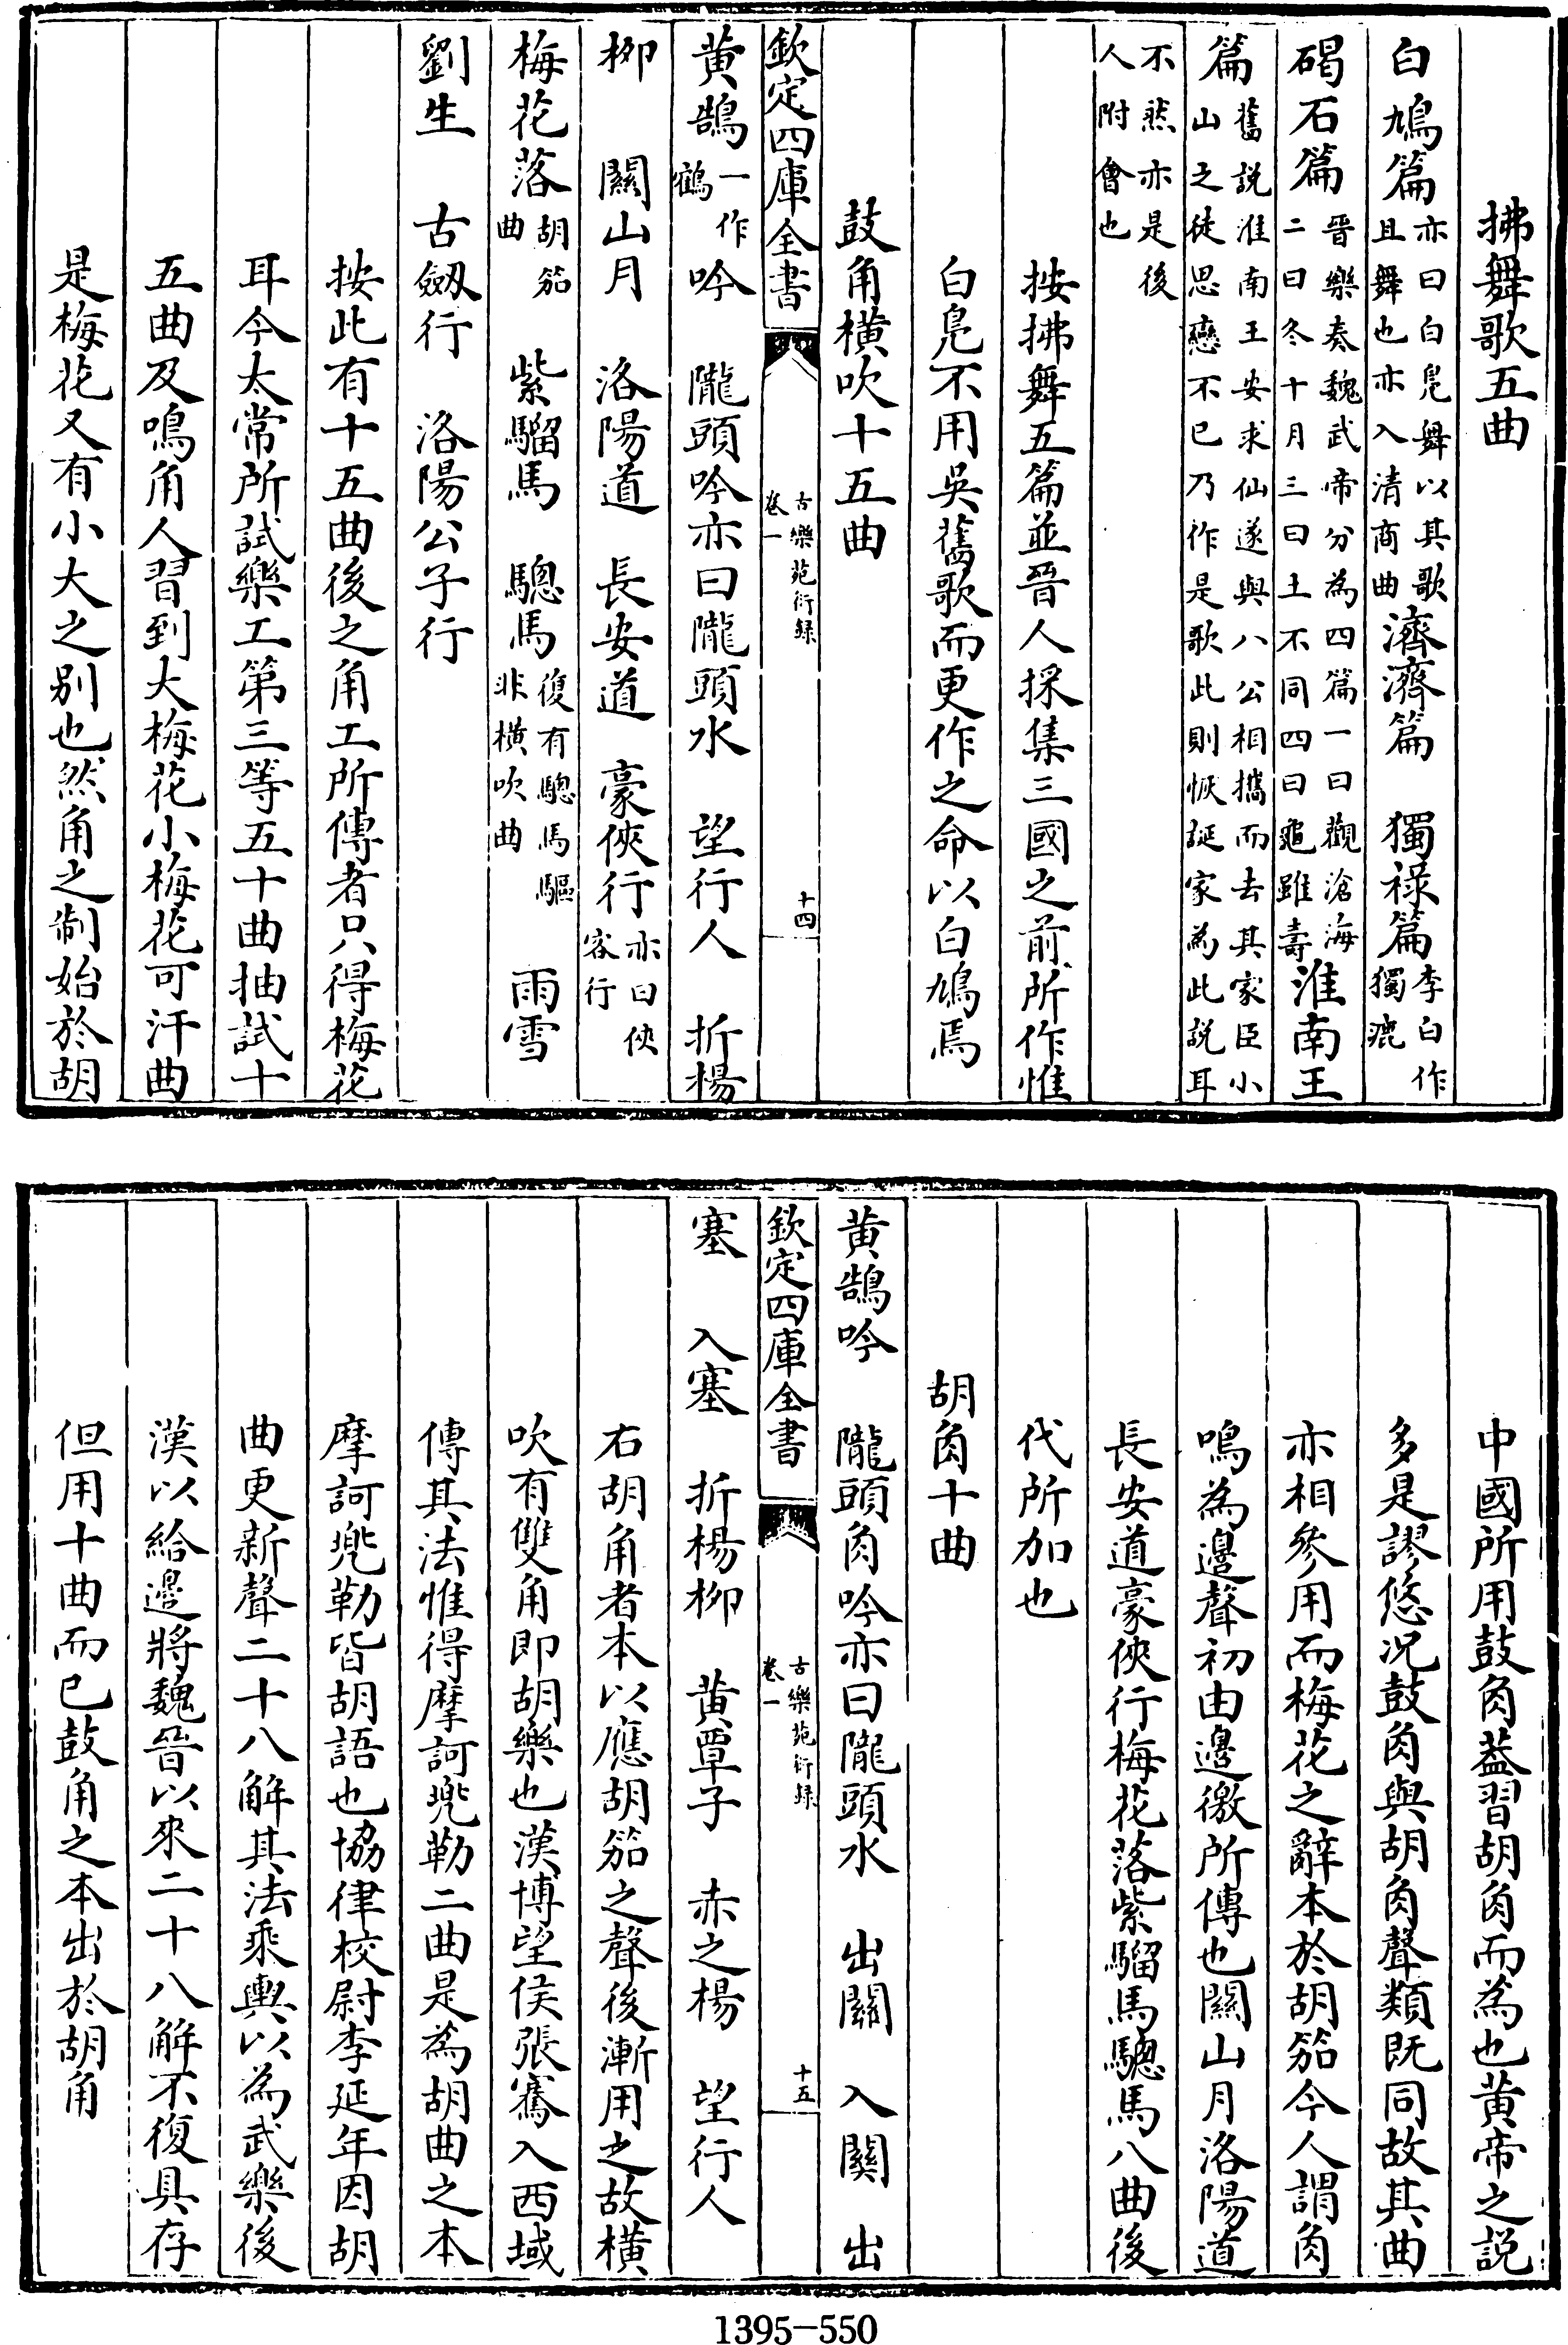 拂舞歌五曲
白鳩篇亦曰白鳧舞以其歌且舞也亦入清商曲濟濟篇　獨祿篇李白作獨漉
碣石篇晉樂奏魏武帝分為四篇一曰觀滄海二曰冬十月三曰土不同四曰龜雖壽淮南王
篇舊説淮南王安求仙遂與八公相攜而去其家臣小山之徒思戀不已乃作是歌此則恢誕家為此説耳
不然亦是後人附會也
按拂舞五篇並晉人採集三國之前所作惟
白鳧不用吳舊歌而更作之命以白鳩焉
鼓角橫吹十五曲
欽定四庫全書　古樂苑衍録卷一　十四
黄鵠一作鶴吟　隴頭吟亦曰隴頭水　望行人　折楊
柳　關山月　洛陽道　長安道　豪俠行亦曰俠客行
梅花落胡笳曲　紫騮馬　驄馬復有驄馬驅非橫吹曲　雨雪
劉生　古劒行　洛陽公子行
按此有十五曲後之角工所傳者只得梅花
耳今太常所試樂工第三等五十曲抽試十
五曲及鳴角人習到大梅花小梅花可汗曲
是梅花又有小大之别也然角之制始於胡
中國所用鼓角葢習胡角而為也黄帝之説
多是謬悠况鼓角與胡角聲類既同故其曲
亦相參用而梅花之辭本於胡笳今人謂角
鳴為邊聲初由邊徼所傳也關山月洛陽道
長安道豪俠行梅花落紫騮馬驄馬八曲後
代所加也
胡角十曲
黄鵠吟　隴頭角吟亦曰隴頭水　出關　入關　出
欽定四庫全書　古樂苑衍録卷一　十五
塞　入塞　折楊柳　黄覃子　赤之楊　望行人
右胡角者本以應胡笳之聲後漸用之故橫
吹有雙角即胡樂也漢博望侯張騫入西域
傳其法惟得摩訶兜勒二曲是為胡曲之本
摩訶兜勒皆胡語也協律校尉李延年因胡
曲更新聲二十八解其法乘輿以為武樂後
漢以給邊將魏晉以來二十八解不復具存
但用十曲而已鼓角之本出於胡角
1395-550